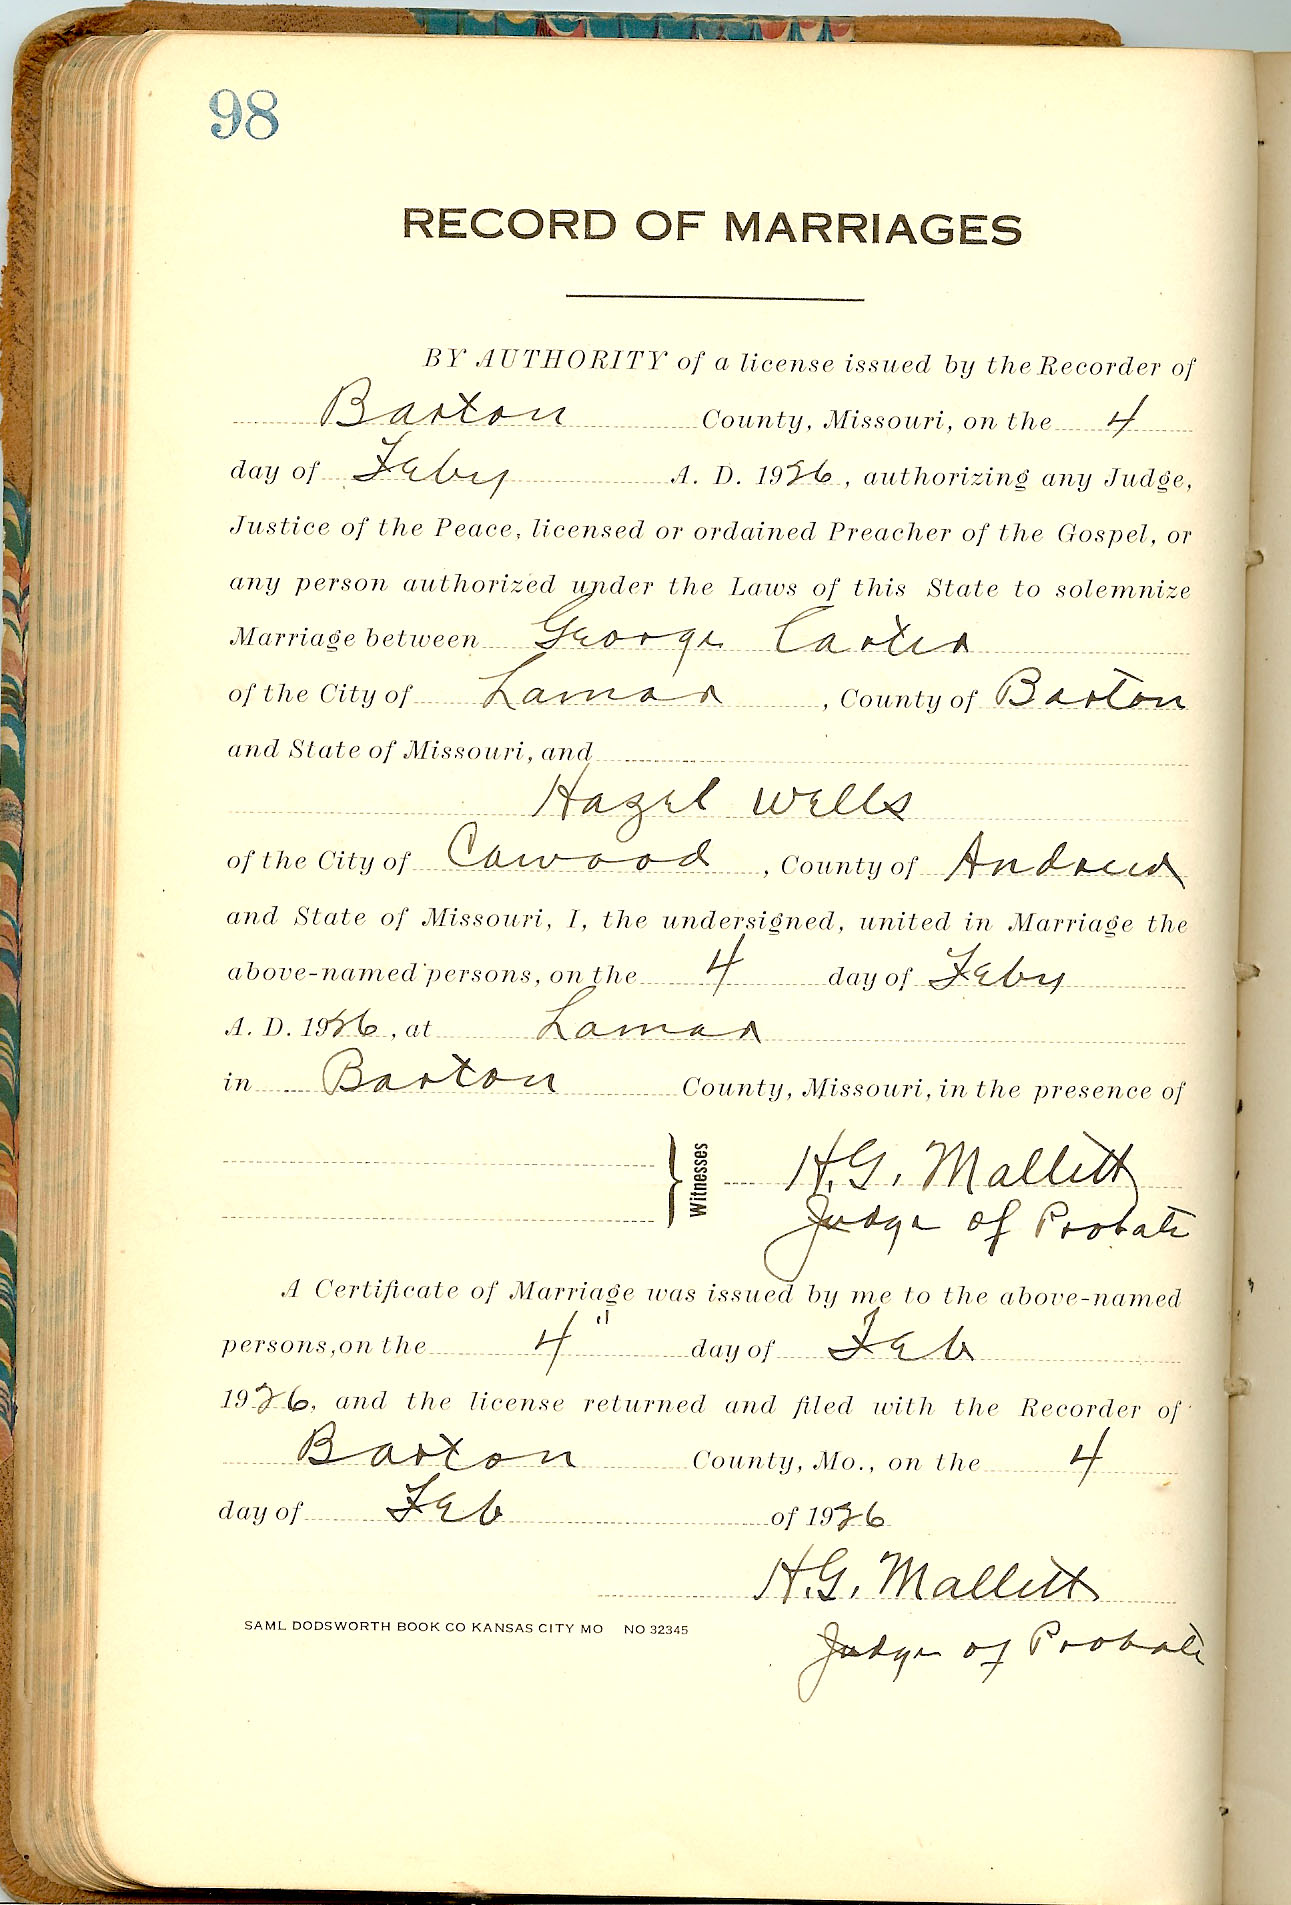 98
RECORD OF MARRIAGES
BY AUTHORITY of a license issued by the Recorder of
Barton County, Missouri, on the 4
day of Feby A. D. 1926, authorizing any Judge,
Justice of the Peace, licensed or ordained Preacher of the Gospel, or
any person authorized under the Laws of this State to solemnize
Marriage between George Carter
of the City of Lamar, County of Barton
and State of Missouri, and
Hazel Wells
of the City of Cawood, County of Andrew
and State of Missouri, I, the undersigned, united in Marriage the
above-named persons, on the 4 day of Feby
A. D. 1926, at Lamar
in Barton County, Missouri, in the presence of
Witnesses H.G. Mallett
Judge of Probate
A Certificate of Marriage was issued by me to the above-named
persons, on the 4" day of Feb
1926, and the license returned and filed with the Recorder of
Barton County, Mo., on the 4
day of Feb of 1926
H.G. Mallett
SAML DODSWORTH BOOK CO KANSAS CITY MO NO 32345
Judge of Probate